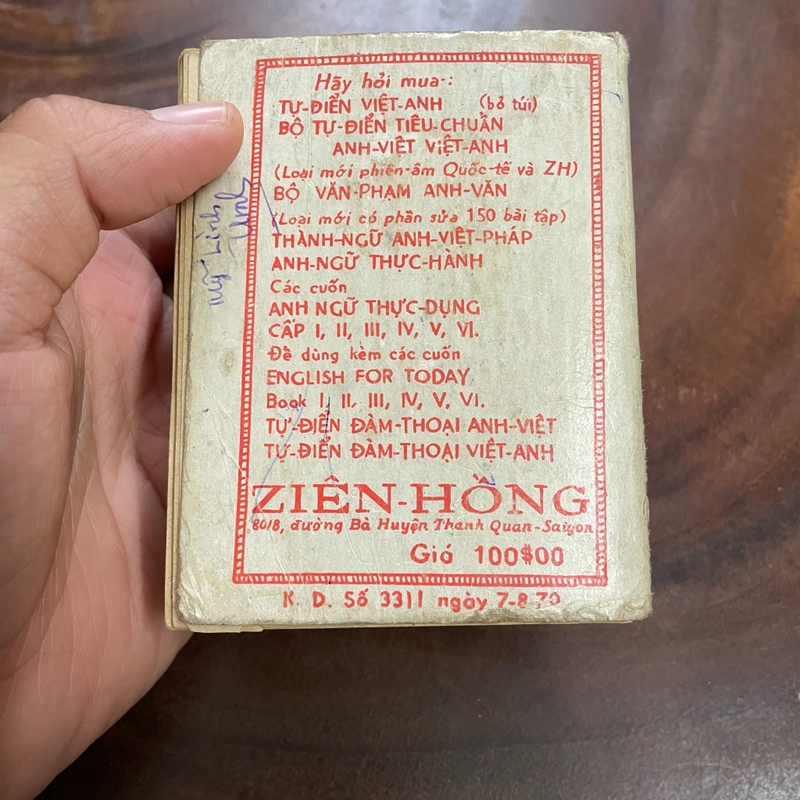 Hãy hỏi mua:
TỰ-ĐIỂN VIỆT-ANH (bỏ túi)
BỘ TỰ-ĐIỂN TIÊU-CHUẨN
ANH-VIỆT VIỆT-ANH
(Loại mới phiên-âm Quốc-tế và ZH)
BỘ VĂN-PHẠM ANH-VĂN
(Loại mới có phần sửa 150 bài tập)
THÀNH-NGỮ ANH-VIỆT-PHÁP
ANH-NGỮ THỰC-HÀNH
Các cuốn
ANH NGỮ THỰC-DỤNG
CẤP I, II, III, IV, V, VI.
Để dùng kèm các cuốn
ENGLISH FOR TODAY
Book I, II, III, IV, V, VI.
TỰ-ĐIỂN ĐÀM-THOẠI ANH-VIỆT
TỰ-ĐIỂN ĐÀM-THOẠI VIỆT-ANH
ZIÊN-HỒNG
80/8, đường Bà Huyện Thanh Quan-Saigon
Giá 100$00
K. D. Số 3311 ngày 7-8-70
Mỹ Linh